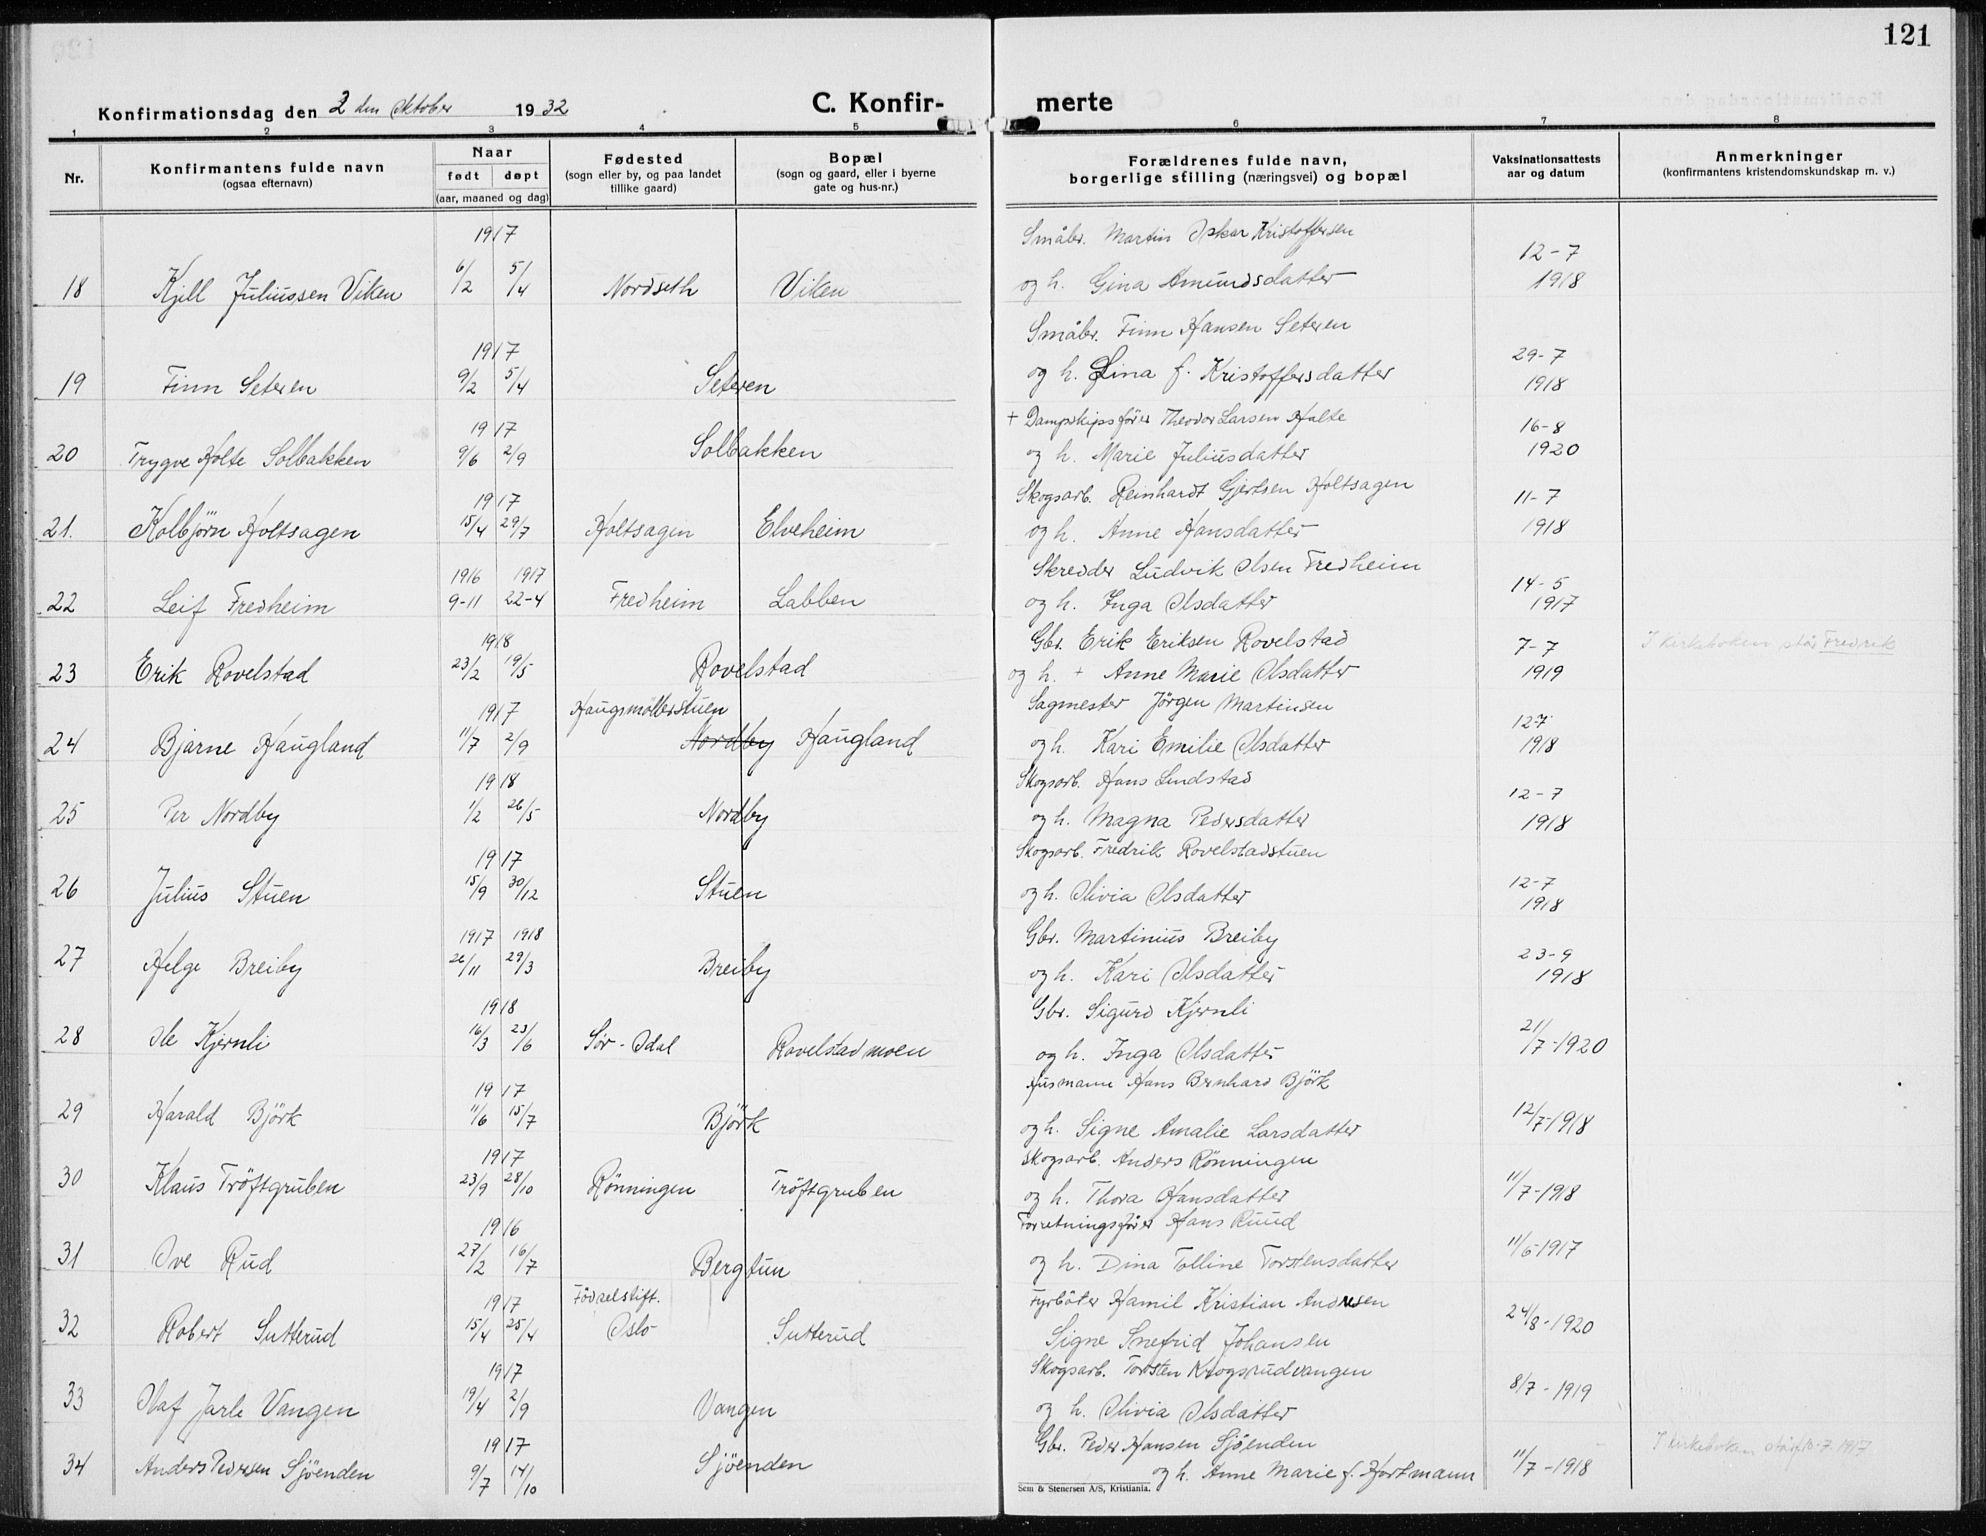 121
Konfirmationsdag den 2 den Oktober 1932
C. Konfir-
merte
1 2 3 4 5 6 7 8
Nr.
Konfirmantens fulde navn
(ogsaa efternavn)
Naar
født døpt
(aar, maaned og dag)
Fødested
(sogn eller by, og paa landet
tillike gaard)
Bopæl
(sogn og gaard, eller i byerne
gate og hus-nr.)
Forældrenes fulde navn,
borgerlige stilling (næringsvei) og bopæl
Vaksinationsattests
aar og datum
Anmerkninger
(konfirmantens kristendomskundskap m. v.)
1917 Småbr. Martin Oskar Kristoffersen 12-7
18 Kjell Juliussen Viken 6/2 5/4 Nordseth Viken og h. Gina Amundsdatter 1918
1917 Småbr. Finn Hansen Seteren 29-7
19 Finn Seteren 9/2 5/4 Seteren og h. Lina f. Kristoffersdatter 1918
1917 + Dampskipsfører Theodor Larsen Holte 16-8
20 Trygve Holte Solbakken 9/6 2/9 Solbakken og h. Marie Juliusdatter 1920
1917 Skogsarb. Reinhardt Gjertsen Holtsagen 11-7
21. Kolbjörn Holtsagen 15/4 29/7 Holtsagen Elveheim og h. Anne Hansdatter 1918
1916 1917 Skredder Ludvik Olsen Fredheim 14-5
22 Leif Fredheim 9-11 22-4 Fredheim Labben og h. Inga Olsdatter 1917
1918 Gbr. Erik Eriksen Rovelstad 7-7 I kirkeboken står Fredrik
23 Erik Rovelstad 23/2 19/5 Rovelstad og h. + Anne Marie Olsdatter 1919
1917 Haugsmöllerstuen Sagmester Jörgen Martinsen 12-7
24 Bjarne Haugland 11/7 2/9 Nordby Haugland og h. Kari Emilie Olsdatter 1918
1918 Skogsarb. Hans Lindstad 12-7
25 Per Nordby 1/2 26/5 Nordby og h. Magna Pedersdatter 1918
1917 Skogsarb. Fredrik Rovelstadstuen
26 Julius Stuen 15/9 30/12 Stuen og h. Olivia Olsdatter 12-7 1918
1917 1918 Gbr. Martinius Breiby 23-9
27 Helge Breiby 26/11 29/3 Breiby og h. Kari Olsdatter 1918
1918 Gbr. Sigurd Kjernli
28 Ole Kjernli 16/3 23/6 Sör-Odal Rovelstadmoen og h. Inga Olsdatter 21/7-1920
1917 Husmann Hans Bernhard Björk
29 Harald Björk 11/6 15/7 Björk og h. Signe Amalie Larsdatter 12/7-1918
1917 Skogsarb. Anders Rönningen
30 Klaus Tröftgruben 23/9 28/10 Rönningen Tröftgruben og h. Thora Hansdatter 11/7-1918
1916 Forretningsfører Hans Ruud
31 Ove Rud 27/2 16/7 Bergtun og h. Dina Tolline Torstensdatter 11/6-1917
1917 Födselstift. Fyrböter Hamil Kristian Andresen
32 Robert Sutterud 15/4 25/4 Oslo Sutterud Signe Snefrid Johansen 24/8-1920
1917 Skogsarb. Torsten Krogsrudvangen
33 Olaf Jarle Vangen 19/4 2/9 Vangen og h. Olivia Olsdatter 8/7-1919
1917 Gbr. Peder Hansen Sjöenden I kirkeboken står 10-7. 1917
34 Anders Pedersen Sjöenden 9/7 14/10 Sjöenden og h. Anne Marie f. Hortmann 11/7-1918
Sem & Stenersen A/S, Kristiania.